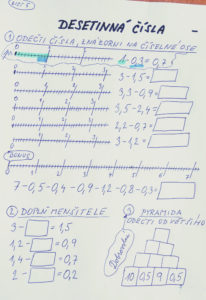 DESETINNÁ ČÍSLA
① ODEČTI ČÍSLA, ZNÁZORNI NA ČÍSELNÉ OSE
1-0,3=0,7
3-1,5=
3,3-0,9=
3,5-2,4=
2,2-0,7=
3-1,2=
BONUS
7-0,5-0,4-0,9-1,2-0,8-0,3=
② DOPLŇ MENŠITELE
3- =1,5
1,2- =0,9
1,4- =0,7
2- =0,2
③ PYRAMIDA
ODEČTI OD VĚTŠÍHO
Dobrovolné
10 0,5 9 0,5